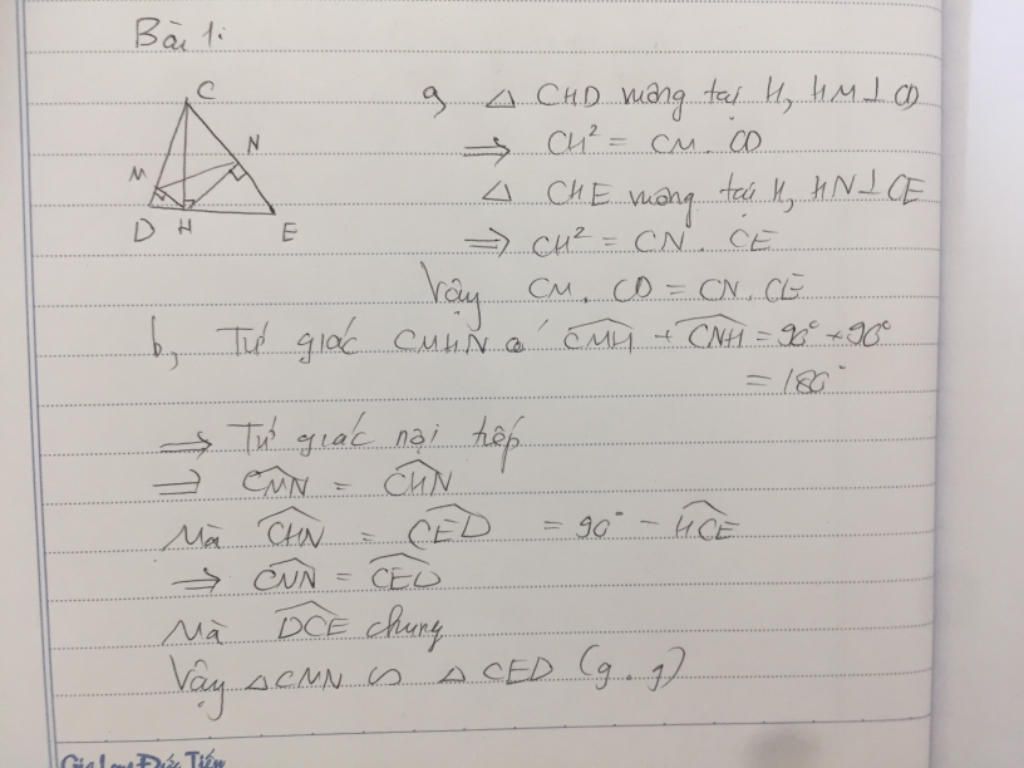 Bài 1:
C
N
M
D H E
a, △ CHD vuông tại H, HM⊥CD
⇒ CH² = CM . CD
△ CHE vuông tại H, HN⊥CE
⇒ CH² = CN . CE
Vậy CM . CD = CN . CE
b, Tứ giác CMHN có CMH + CNH = 90° + 90°
= 180°
⇒ Tứ giác nội tiếp
⇒ CMN = CHN
Mà CHN = CED = 90° - HCE
⇒ CMN = CED
Mà DCE chung
Vậy △CMN ∽ △CED (g.g)
Đức Tiến